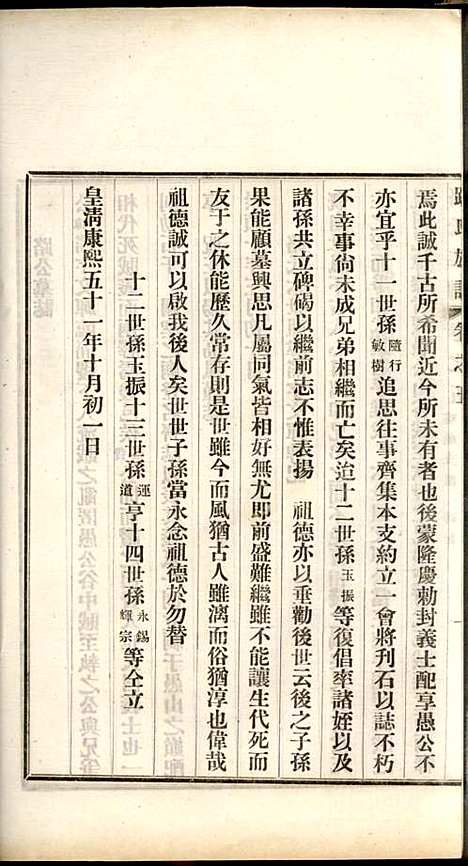 焉此誠千古所希聞近今所未有者也後蒙隆慶勅封義士配享愚公不
亦宜乎十一世孫隨行敏樹追思往事齊集本支約立一會將刋石以誌不朽
不幸事尙未成兄弟相繼而亡矣迨十二世孫玉振等復倡率諸姪以及
諸孫共立碑碣以繼前志不惟表揚　祖德亦以垂勸後世云後之子孫
果能顧墓興思凡屬同氣皆相好無尤即前盛難繼雖不能讓生代死而
友于之休能歷久常存則是世雖今而風猶古人雖漓而俗猶淳也偉哉
祖德誠可以啟我後人矣世世子孫當永念祖德於勿替
十二世孫玉振十三世孫運道亨十四世孫永錫耀宗等仝立
皇淸康熙五十一年十月初一日